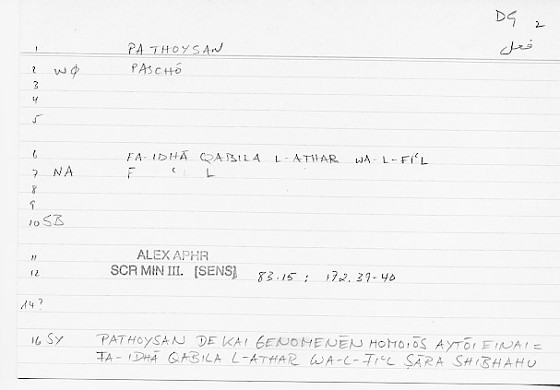 DG 2
فعل
1 PATHOYSAN
2 WO PASCHŌ
3
4
5
6 FA-IDHĀ QABILA L-ATHAR WA-L-FIʿL
7 NA F ʿ L
8
9
10 SB
11 ALEX APHR
12 SCR MIN III. [SENS] 83.15 ; 172.37-40
14?
16 SY PATHOYSAN DE KAI GENOMENĒN HOMOIŌS AYTŌI EINAI =
FA-IDHĀ QABILA L-ATHAR WA-L-FIʿL ṢĀRA SHIBHAHU